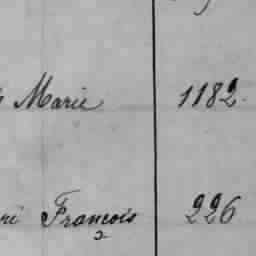 Marie 1182
François 226